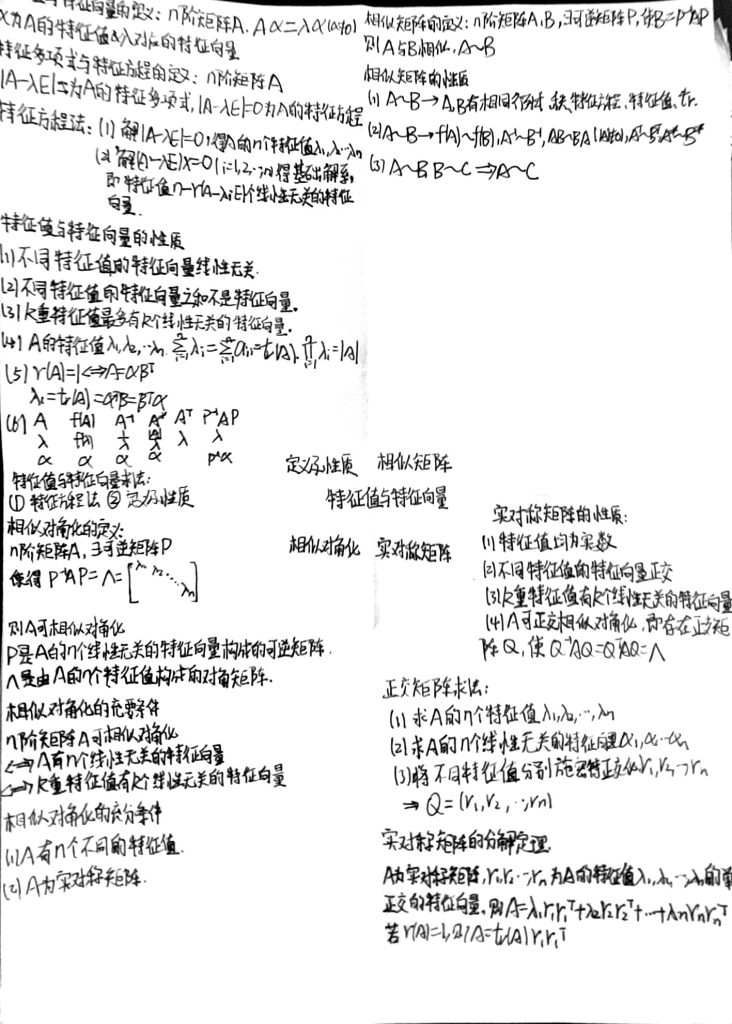 特征向量的定义：n阶矩阵A、Aα=λα(α≠0)
为A的特征值&λ对应的特征向量
特征多项式与特征方程的定义：n阶矩阵A
|A-λE|为A的特征多项式,|A-λE|=0为A的特征方程
特征方程法：(1) 解|A-λE|=0,得A的n个特征值λ₁,λ₂…λn
(2) 解(A-λᵢE)x=0(i=1,2,…,n)得基础解系,
即特征值n-r(A-λᵢE)个线性无关的特征
向量.
特征值与特征向量的性质
(1)不同特征值的特征向量线性无关.
(2)不同特征值的特征向量之和不是特征向量。
(3)k重特征值最多有k个线性无关的特征向量.
(4) A的特征值λ₁,λ₂,…λn. Σλᵢ=Σaᵢᵢ=tr(A).Πλᵢ=|A|
(5) r(A)=1⟺A=αβᵀ
=tr(A)=αᵀβ=βᵀα
(6) A f(A) A⁻¹ A* Aᵀ P⁻¹AP
λ f(λ) 1/λ |A|/λ λ λ
α α α α P⁻¹α
特征值与特征向量求法：
① 特征方程法 ② 定义及性质
相似对角化的定义：
n阶矩阵A，∃可逆矩阵P
使得 P⁻¹AP=Λ=[λ₁ λ₂ ⋱ λn]
则A可相似对角化
P是A的n个线性无关的特征向量构成的可逆矩阵.
Λ是由A的n个特征值构成的对角矩阵.
相似对角化的充要条件
n阶矩阵A可相似对角化
⟺A有n个线性无关的特征向量
⟺k重特征值有k个线性无关的特征向量
相似对角化的充分条件
(1)A有n个不同的特征值.
(2) A为实对称矩阵.
定义及性质 相似矩阵
特征值与特征向量
相似对角化 实对称矩阵
相似矩阵的定义：n阶矩阵A,B,∃可逆矩阵P,使B=P⁻¹AP
则A与B相似,A~B
相似矩阵的性质
(1) A~B→A,B有相同行列式、秩、特征方程、特征值、tr.
(2)A~B→f(A)~f(B),A⁻¹~B⁻¹,AB~BA(|A|≠0),Aᵀ~Bᵀ,A*~B*
(3) A~B,B~C⇒A~C
实对称矩阵的性质：
(1) 特征值均为实数
(2)不同特征值的特征向量正交
(3)k重特征值有k个线性无关的特征向量
(4)A可正交相似对角化，即存在正交矩
阵Q，使Q⁻¹AQ=QᵀAQ=Λ
正交矩阵求法：
(1) 求A的n个特征值λ₁,λ₂,…,λn
(2)求A的n个线性无关的特征向量α₁,α₂…αn
(3)将不同特征值分别施密特正交化r₁,r₂…rn
⇒ Q=(r₁,r₂,…,rn)
实对称矩阵的分解定理.
A为实对称矩阵,r₁,r₂…,rn为A的特征值λ₁,λ₂,…,λn的单
正交的特征向量.则A=λ₁r₁r₁ᵀ+λ₂r₂r₂ᵀ+…+λnrnrnᵀ
若r(A)=1,则A=tr(A)r₁r₁ᵀ